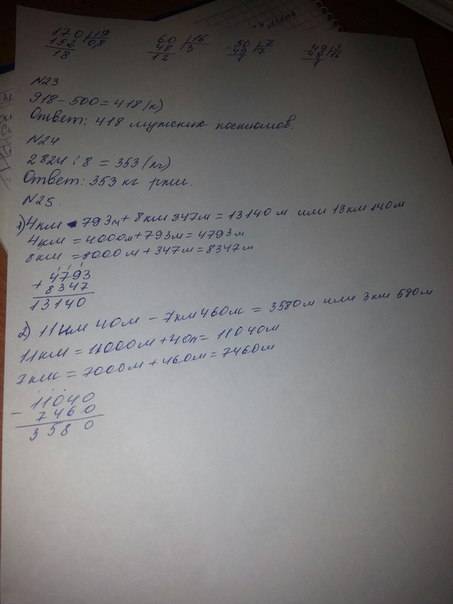 170 | 19
152 | 08
18
60 | 16
48 | 3
12
N23
918 - 500 = 418 (к)
Ответ: 418 мужских костюмов.
N24
2824 : 8 = 353 (кг)
Ответ: 353 кг ржи.
N25
1) 4км 793м + 8км 347м = 13140 м или 13км 140м
4км = 4000м + 793м = 4793м
8км = 8000м + 347м = 8347м
+ 4793
8347
13140
2) 11км 40м - 7км 460м = 3580м или 3км 580м
11км = 11000м + 40м = 11040м
7км = 7000м + 460м = 7460м
- 11040
7460
3580